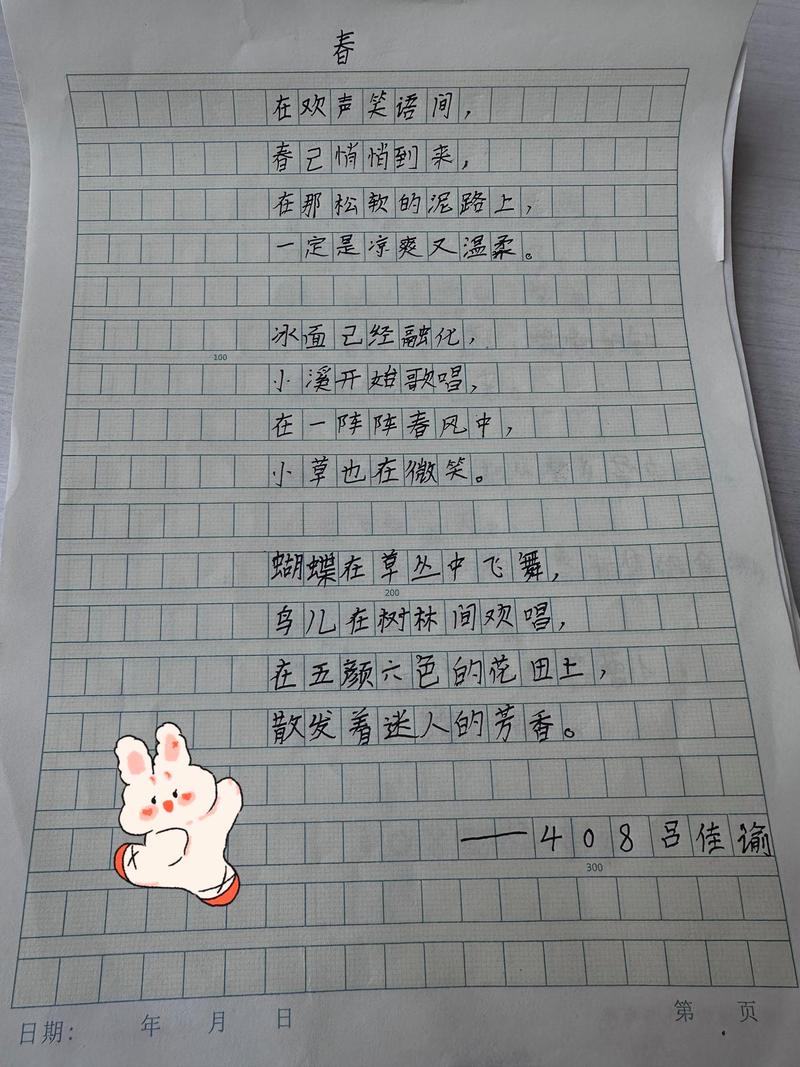 春
在欢声笑语间，
春已悄悄到来，
在那松软的泥路上，
一定是凉爽又温柔。
冰面已经融化，
100
小溪开始歌唱，
在一阵阵春风中，
小草也在微笑。
蝴蝶在草丛中飞舞，
200
鸟儿在树林间欢唱，
在五颜六色的花田上，
散发着迷人的芳香。
——408吕佳谕
300
日期： 年 月 日
第 页